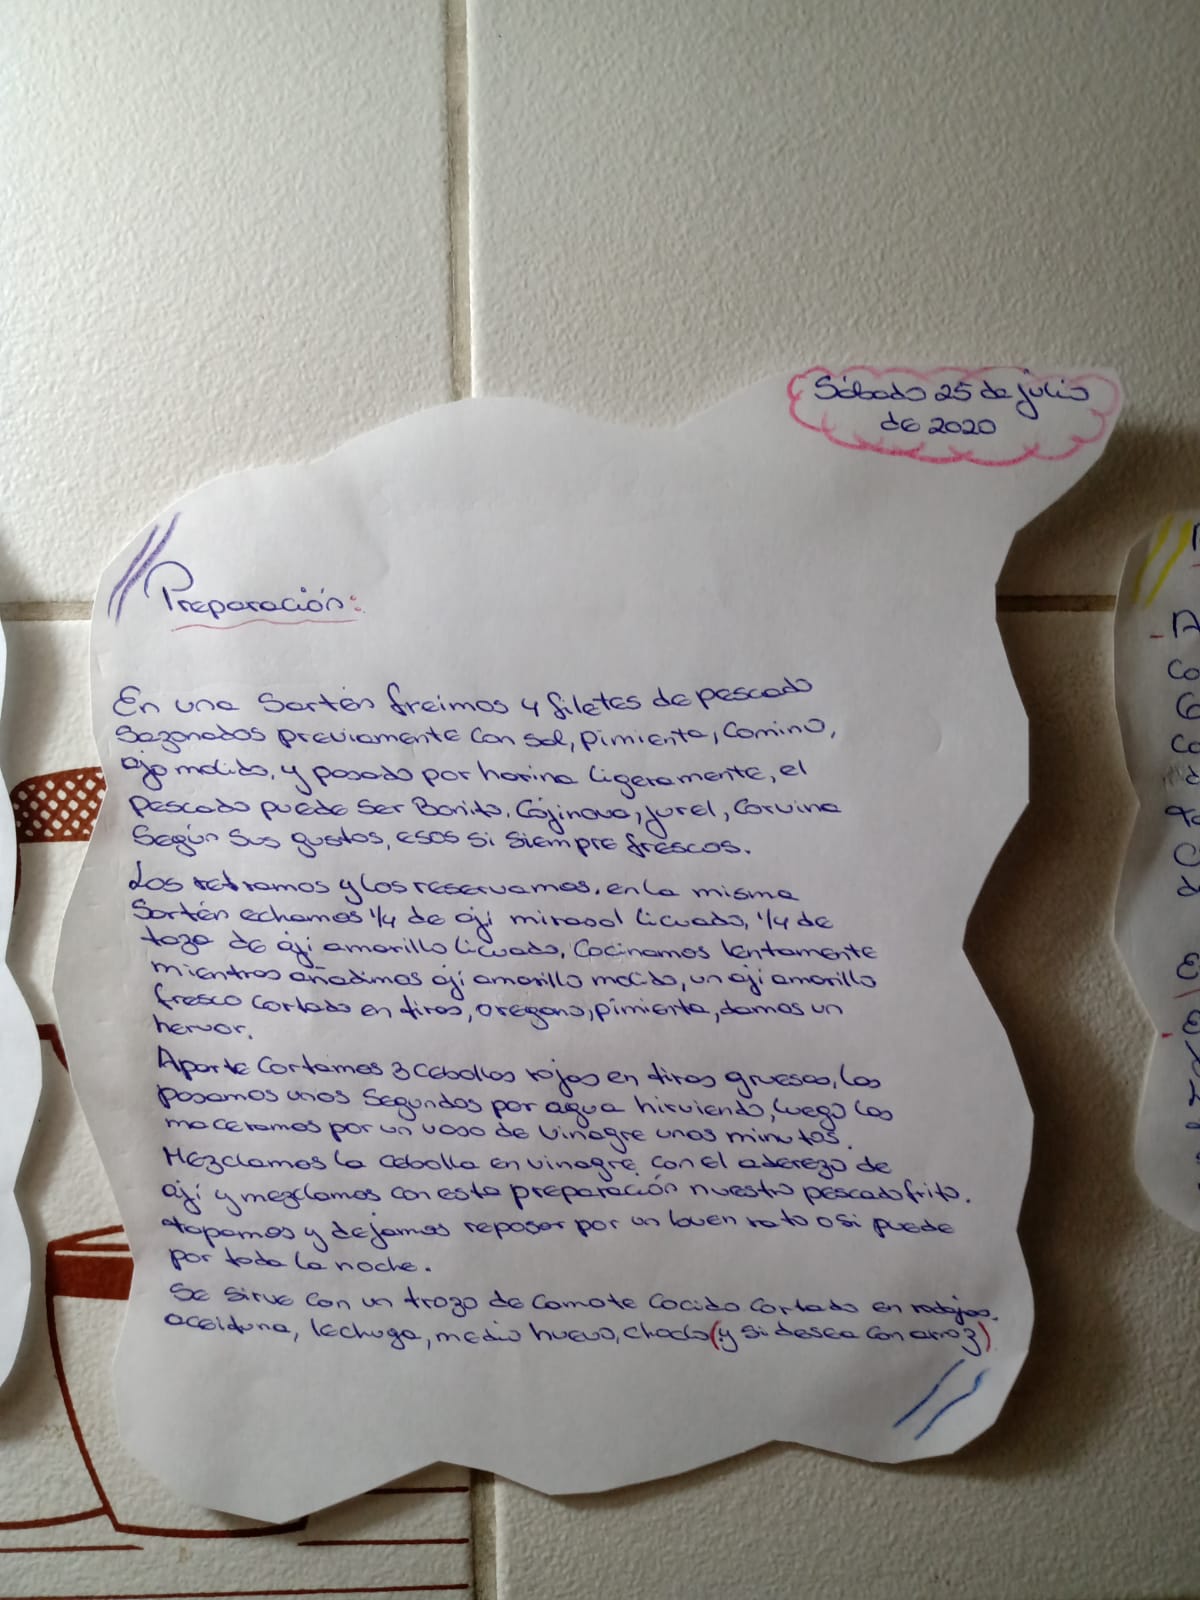 Sábado 25 de julio
de 2020
Preparación:
En una Sartén freimos 4 filetes de pescado
Sazonados previamente con sal, pimienta, Comino,
ajo molido, y pasado por harina ligeramente, el
pescado puede ser Bonito, Cojinova, jurel, Corvina
Según sus gustos, esos si siempre frescos.
Los retiramos y los reservamos, en la misma
Sartén echamos 1/4 de ají mirasol licuado, 1/4 de
taza de ají amarillo licuado, Cocinamos lentamente
mientras añadimos ají amarillo molido, un ají amarillo
fresco cortado en tiras, orégano, pimienta, damos un
hervor.
Aparte Cortamos 3 cebollas rojas en tiras gruesas, las
pasamos unos segundos por agua hirviendo, luego las
maceramos por un vaso de vinagre unos minutos.
Mezclamos la cebolla en vinagre con el aderezo de
ají y mezclamos con esta preparación nuestro pescado frito.
tapamos y dejamos reposar por un buen rato o si puede
por toda la noche.
Se sirve con un trozo de Camote Cocido Cortado en rodajas.
aceituna, lechuga, medio huevo, choclo (y si desea con arroz)
A
co
C
co
d
C
d
E